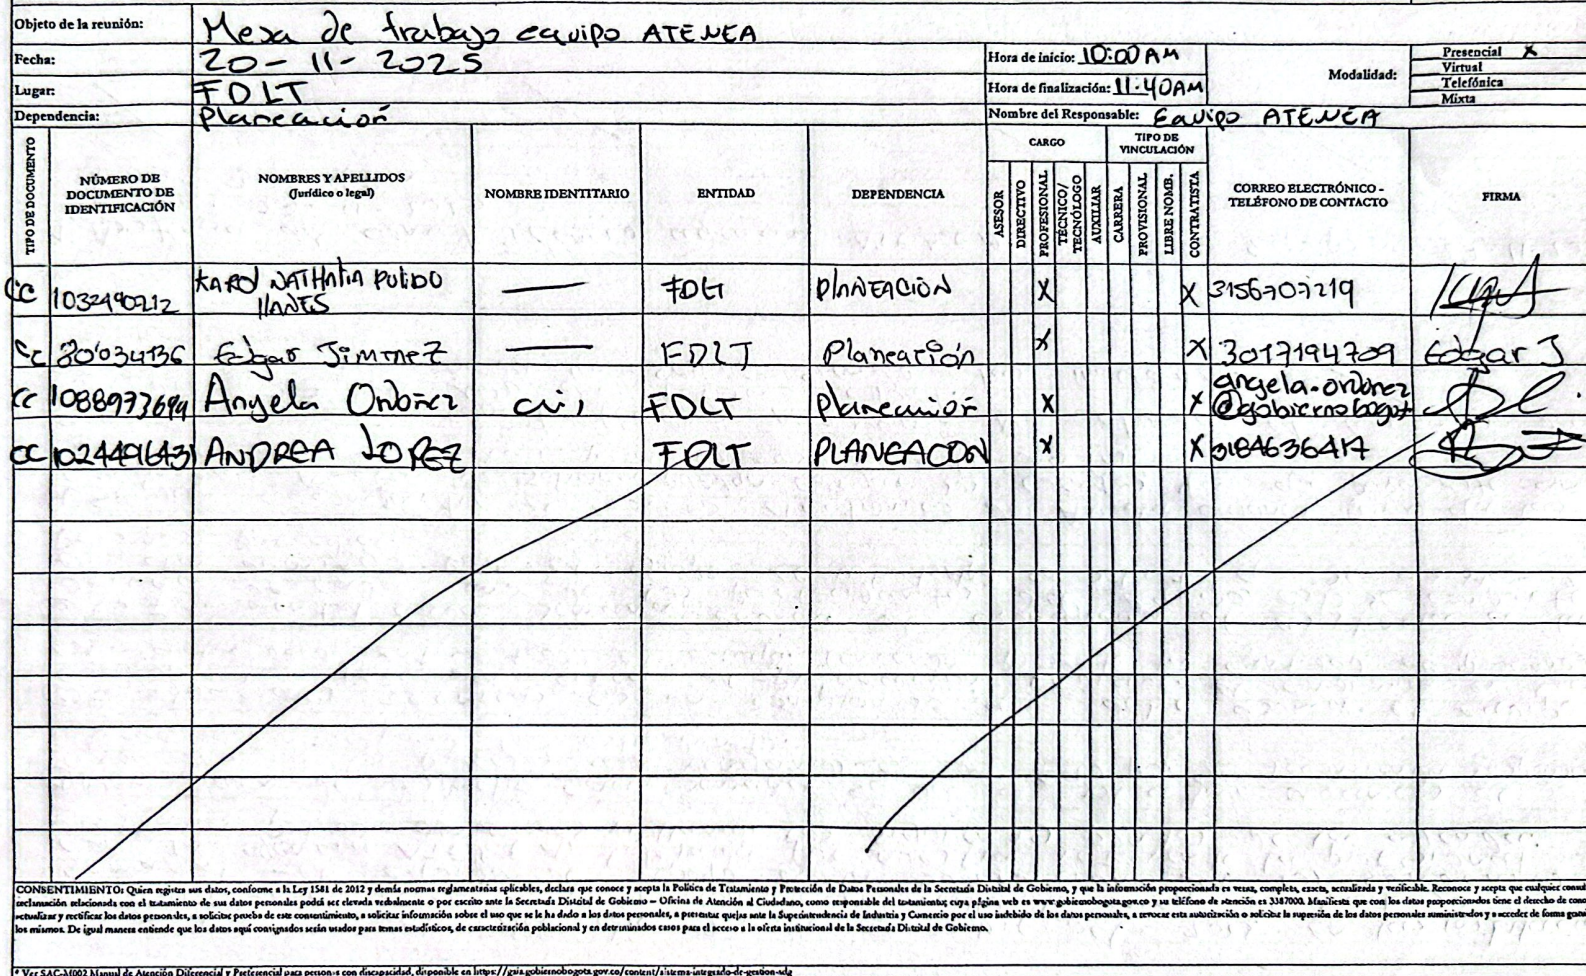 Objeto de la reunión: Mesa de trabajo equipo ATENEA
Fecha: 20-11-2025
Hora de inicio: 10:00 AM
Lugar: FDLT
Hora de finalización: 11:40AM
Modalidad:
Presencial X
Virtual
Telefónica
Mixta
Dependencia: Planeación
Nombre del Responsable: Equipo ATENEA
TIPO DE DOCUMENTO
NÚMERO DE DOCUMENTO DE IDENTIFICACIÓN
NOMBRES Y APELLIDOS (Jurídico o legal)
NOMBRE IDENTITARIO
ENTIDAD
DEPENDENCIA
CARGO
ASESOR
DIRECTIVO
PROFESIONAL
TÉCNICO/ TECNÓLOGO
AUXILIAR
TIPO DE VINCULACIÓN
CARRERA
PROVISIONAL
LIBRE NOMB.
CONTRATISTA
CORREO ELECTRÓNICO - TELÉFONO DE CONTACTO
FIRMA
CC 1032490212 KAROL NATHALIA PULIDO LLANES — FDLT PLANEACIÓN X X 3156707219
CC 80034136 Edgar Jimenez — FDLT Planeación X X 3017194709 Edgar J
CC 1088973699 Angela Ordoñez FDLT Planeación X X angela.ordonez @gobiernobogot
CC 1024491643 ANDREA LOPEZ FDLT PLANEACON X X 3184636417
CONSENTIMIENTO: Quien registra sus datos, conforme a la Ley 1581 de 2012 y demás normas reglamentarias aplicables, declara que conoce y acepta la Política de Tratamiento y Protección de Datos Personales de la Secretaría Distrital de Gobierno, y que la información proporcionada es veraz, completa, exacta, actualizada y verificable. Reconoce y acepta que cualquier consul
reclamación relacionada con el tratamiento de sus datos personales podrá ser elevada verbalmente o por escrito ante la Secretaría Distrital de Gobierno – Oficina de Atención al Ciudadano, como responsable del tratamiento; cuya página web es www.gobiernobogota.gov.co y su teléfono de atención es 3387000. Manifiesta que con los datos proporcionados tiene el derecho de cono
actualizar y rectificar los datos personales, a solicitar prueba de este consentimiento, a solicitar información sobre el uso que se le ha dado a los datos personales, a presentar quejas ante la Superintendencia de Industria y Comercio por el uso indebido de los datos personales, a revocar esta autorización o solicitar la supresión de los datos personales suministrados y a acceder de forma grat
los mismos. De igual manera entiende que los datos aquí consignados serán usados para temas estadísticos, de caracterización poblacional y en determinados casos para el acceso a la oferta institucional de la Secretaría Distrital de Gobierno.
* Ver SAC-M002 Manual de Atención Diferencial y Preferencial para personas con discapacidad, disponible en https://gaia.gobiernobogota.gov.co/content/sistema-integrado-de-gestion-sdg